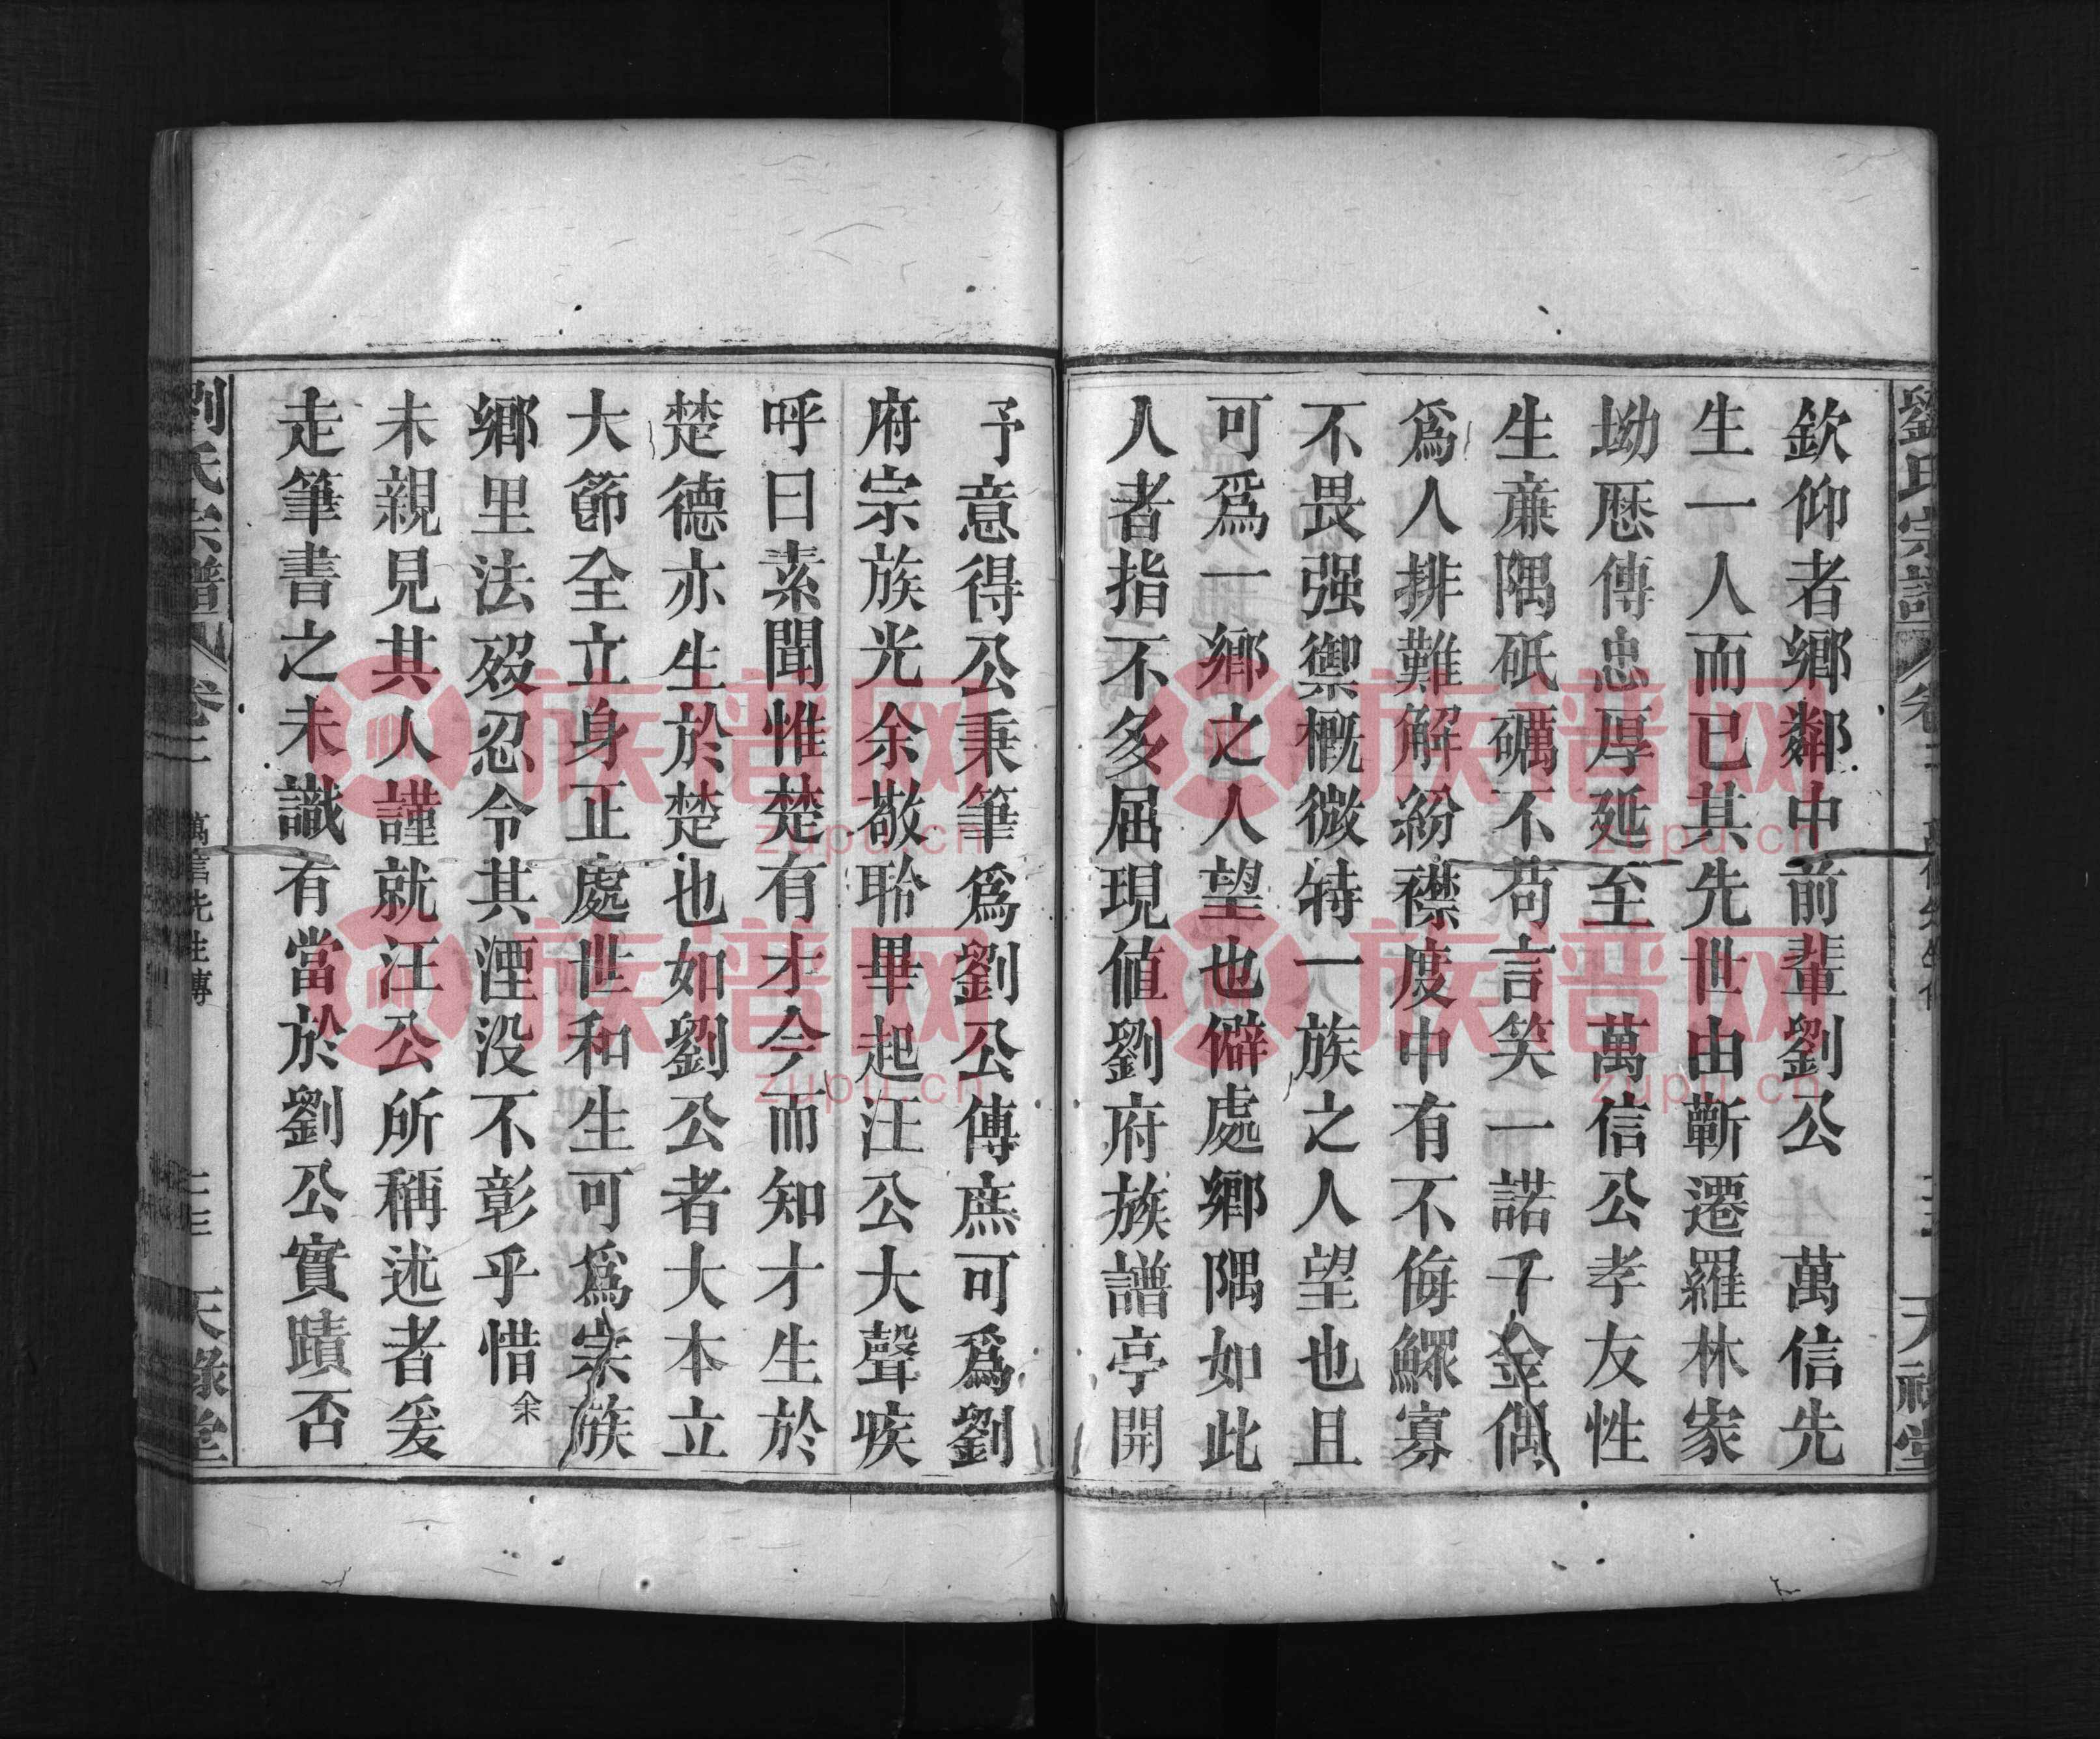 欽仰者鄉鄰中前輩劉公　萬信先
生一人而已其先世由蘄遷羅林家
坳歷傳忠厚延至　萬信公孝友性
生廉隅砥礪不苟言笑一諾千金偶
爲人排難解紛襟度中有不侮鰥寡
不畏强禦概微特一族之人望也且
可爲一鄉之人望也僻處鄉隅如此
人者指不多屈現值劉府族譜亭開
予意得公秉筆爲劉公傳庶可爲劉
府宗族光余敬聆畢起汪公大聲疾
呼曰素聞惟楚有才今而知才生於
楚德亦生於楚也如劉公者大本立
大節全立身正處世和生可爲宗族
鄉里法歿忍令其湮没不彰乎惜余
未親見其人謹就汪公所稱述者爰
走筆書之未識有當於劉公實蹟否
劉氏宗譜 卷二 萬信先生傳 天祿堂
族谱网
zupu.cn
族谱网
zupu.cn
族谱网
zupu.cn
族谱网
zupu.cn